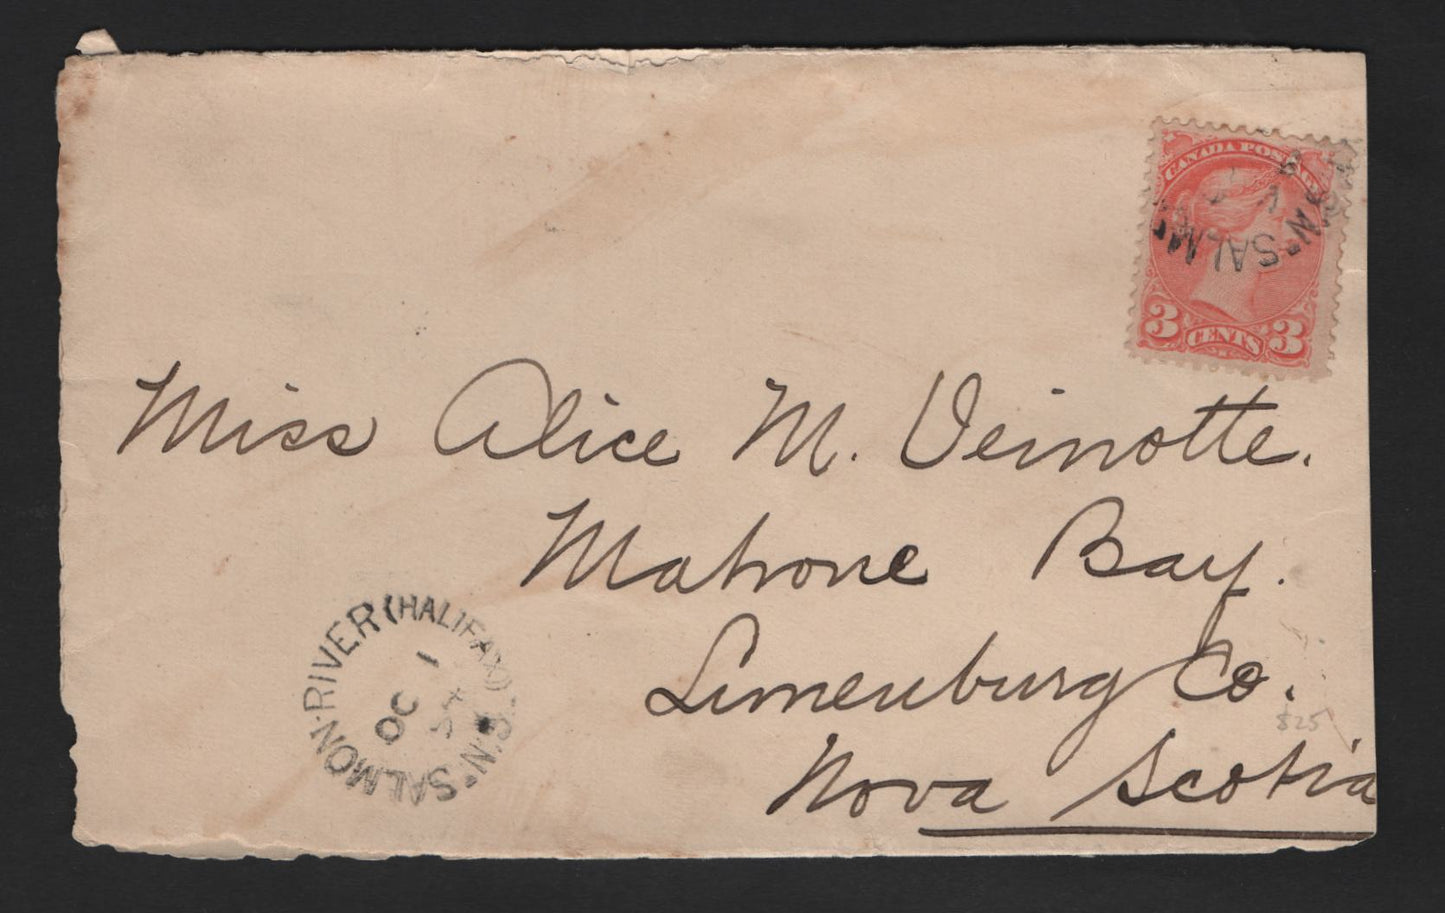 CANADA POSTAGE
N.S. SALM
3 CENTS 3
Miss Alice M. Veinotte.
Mahone Bay.
Lunenburg Co.
Nova Scotia
SALMON·RIVER (HALIFAX) N.S.
OC 1
$25